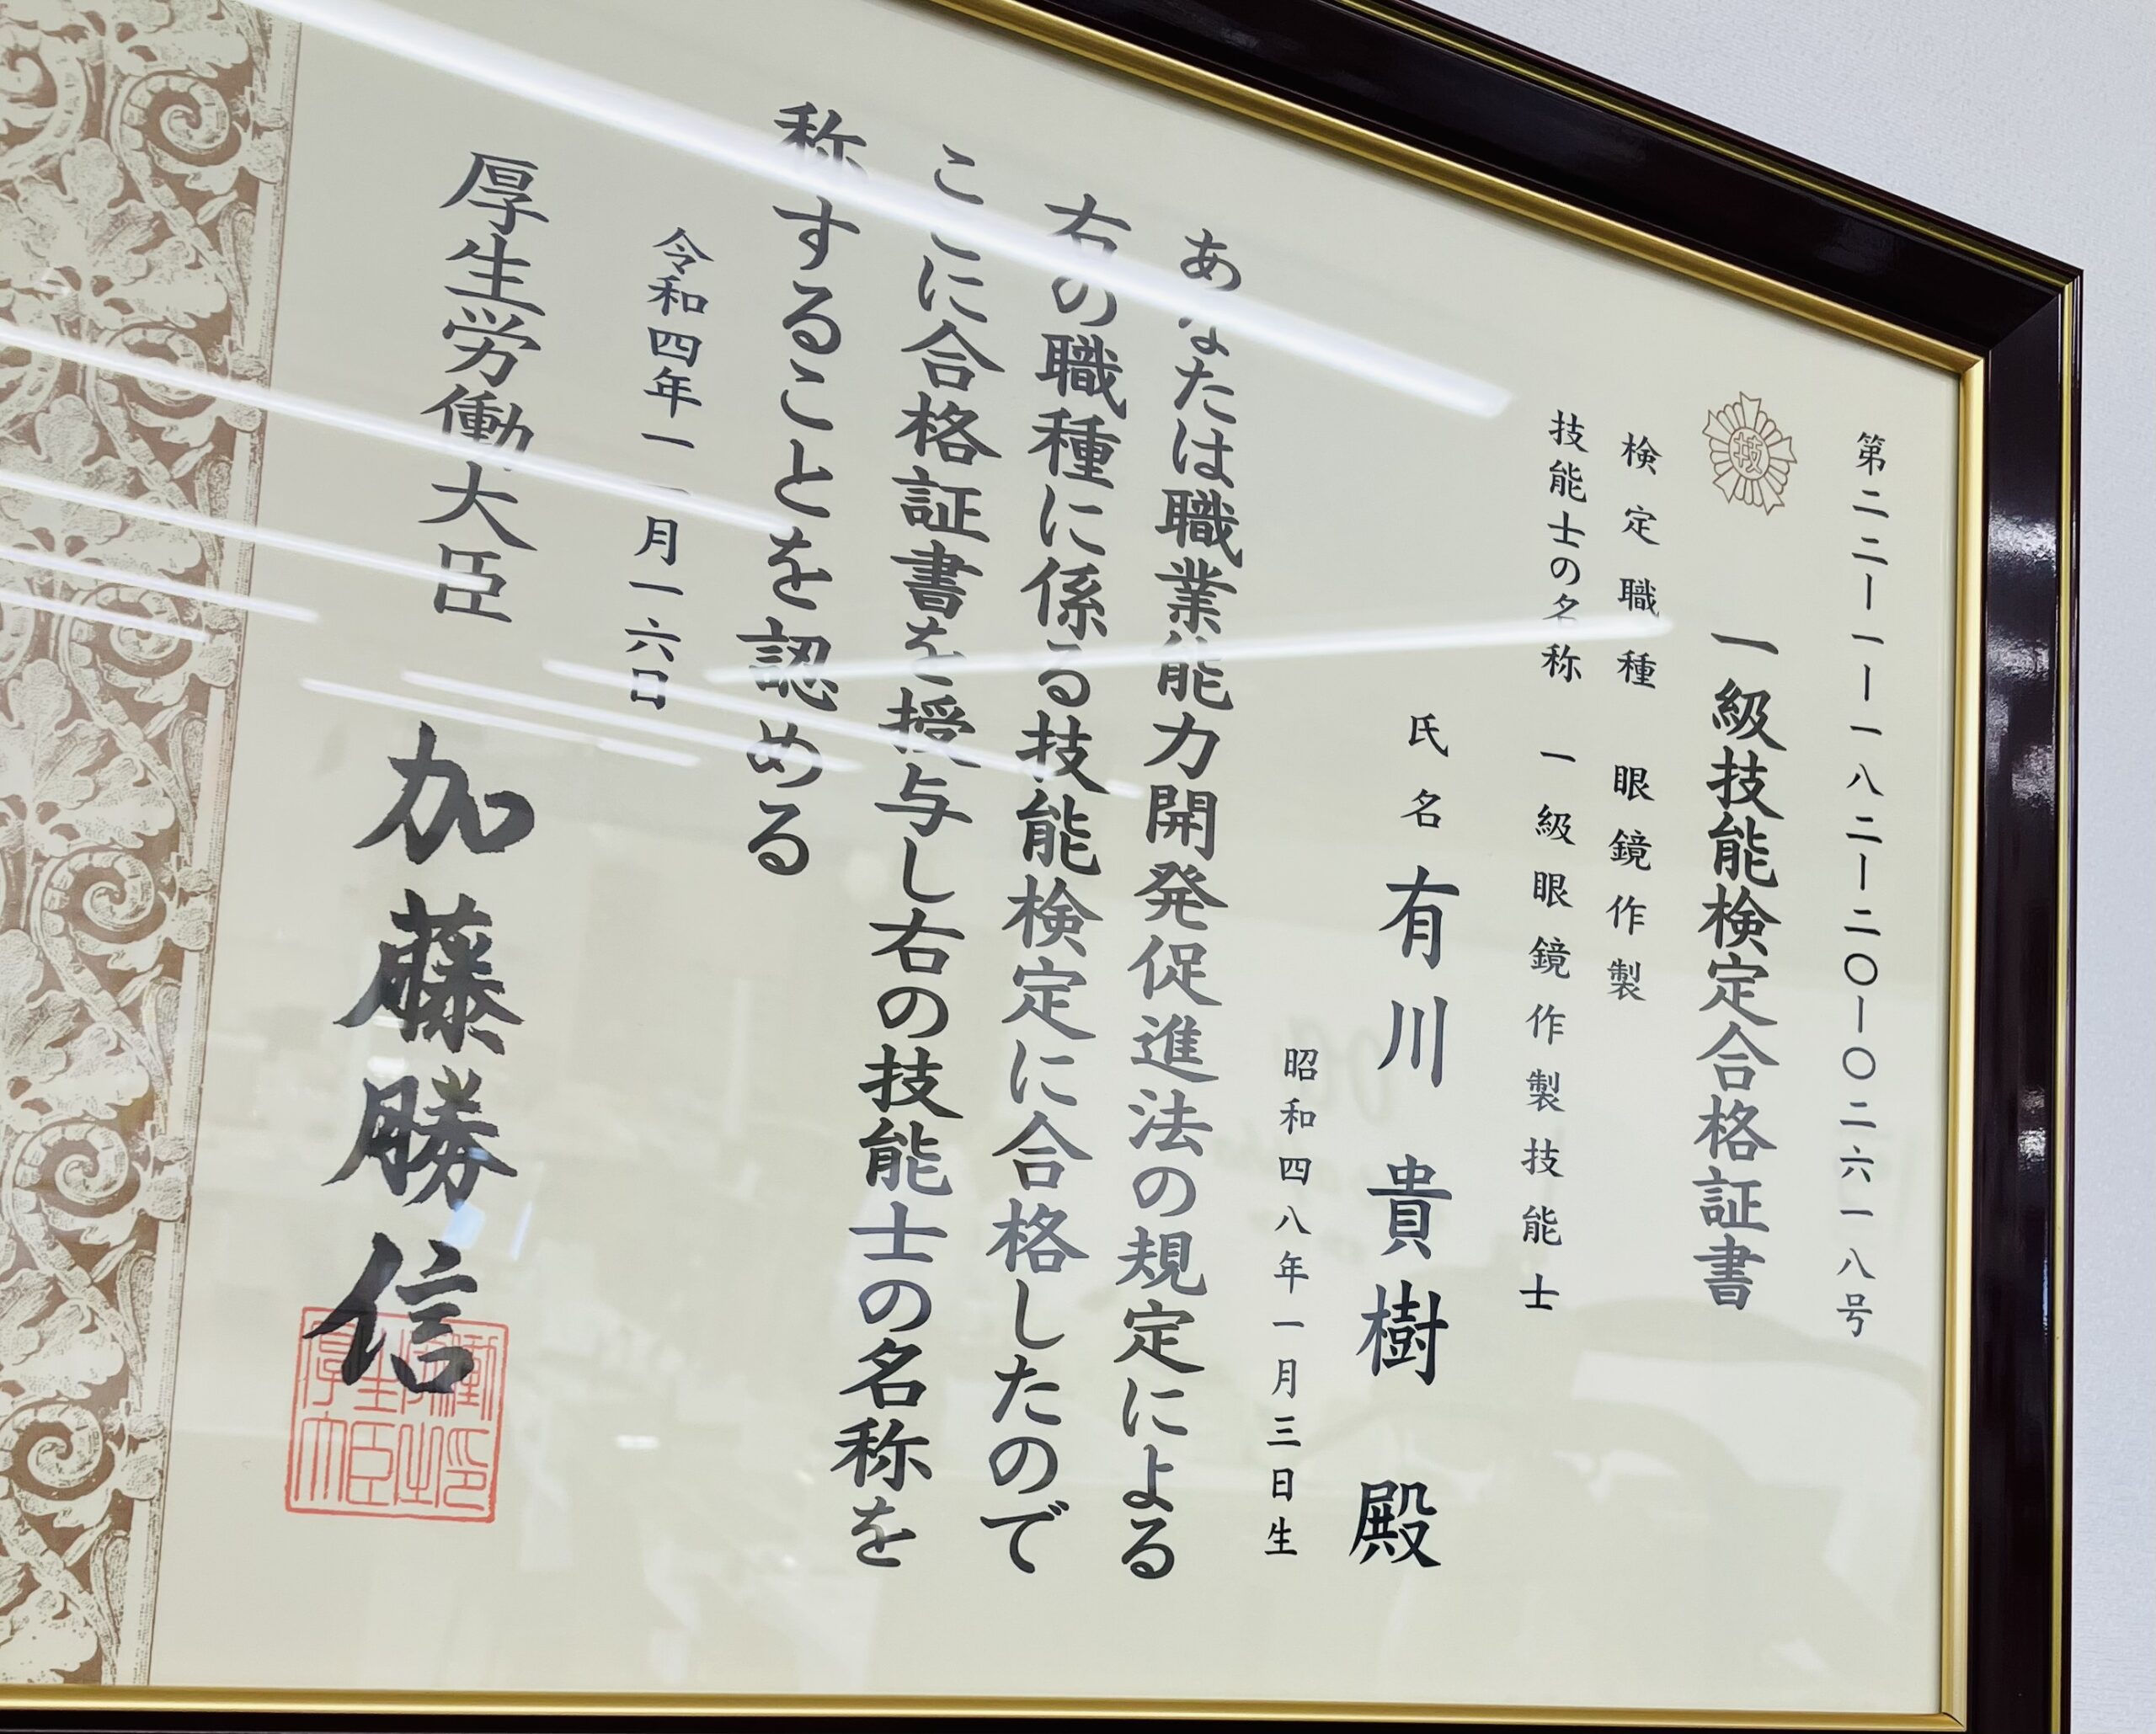 第二二ー一ー一八二ー二〇ー〇二六一八号
技
一級技能検定合格証書
検定職種 眼鏡作製
技能士の名称 一級眼鏡作製技能士
氏名 有川 貴樹 殿
昭和四八年一月三日生
あなたは職業能力開発促進法の規定による
右の職種に係る技能検定に合格したので
ここに合格証書を授与し右の技能士の名称を
称することを認める
令和四年一一月一六日
厚生労働大臣 加藤勝信
厚生労働大臣之印